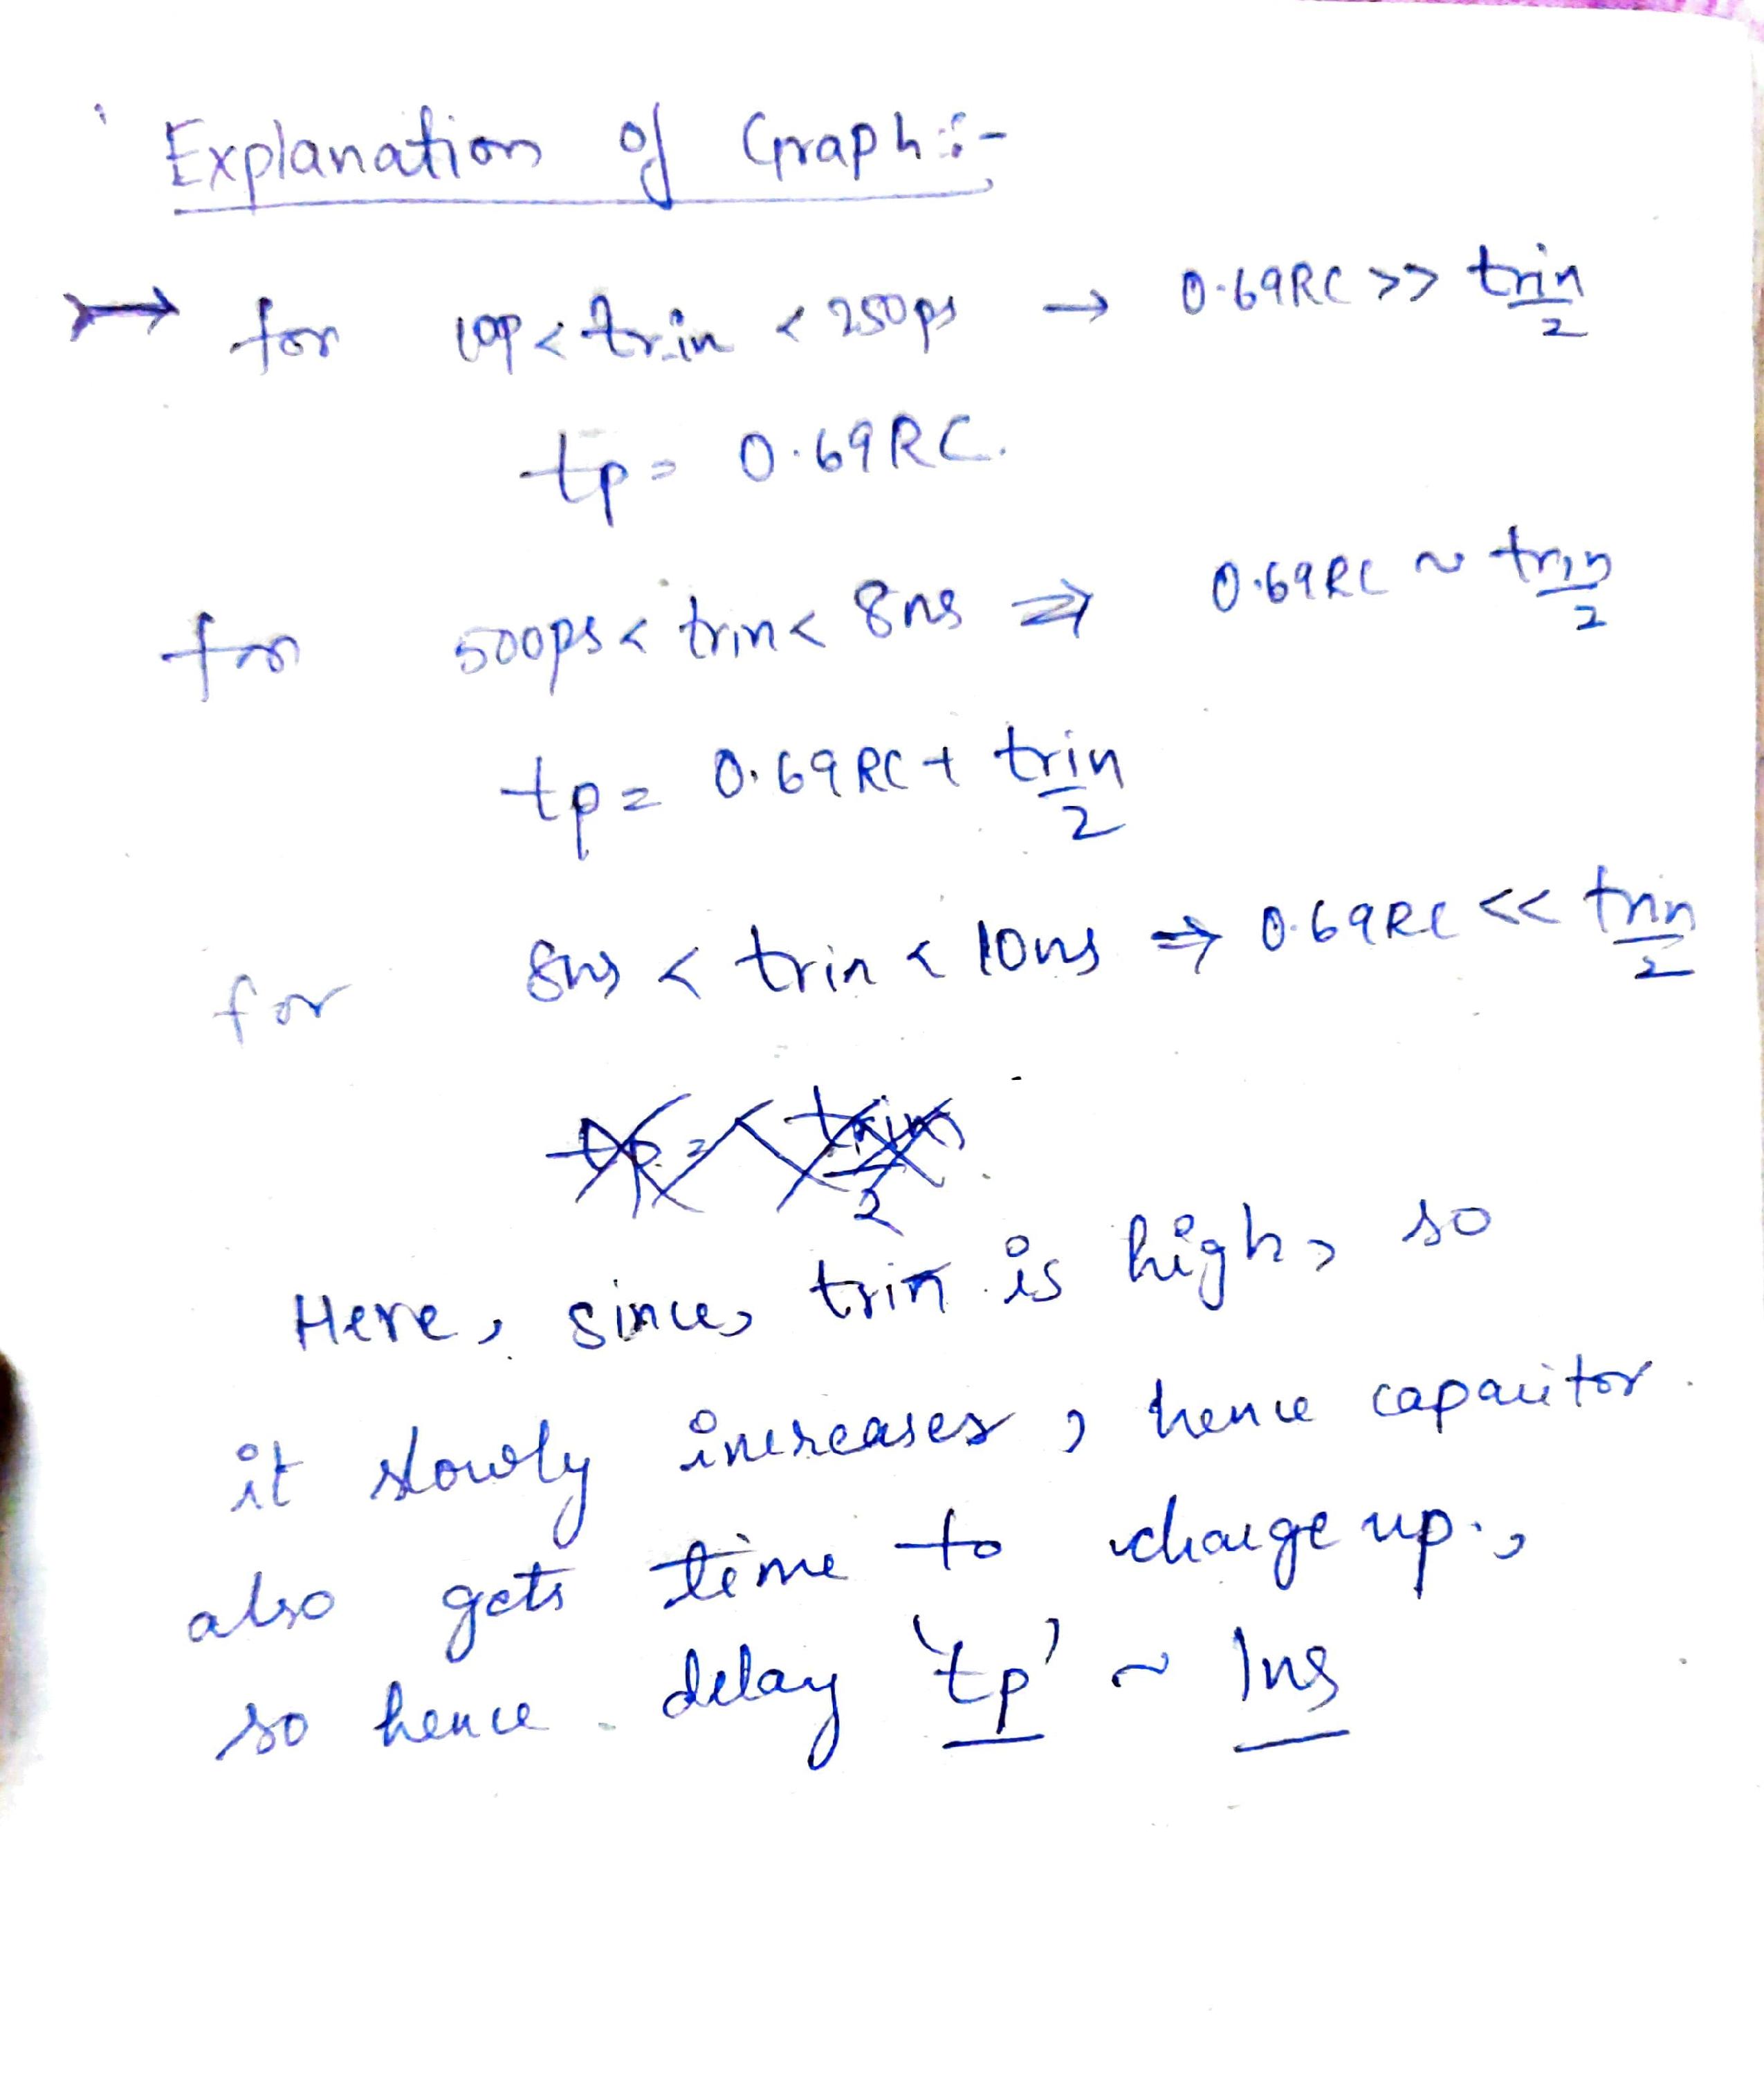 Explanation of Graph :-
for 10p < trin < 250ps → 0.69RC >> trin/2
tp = 0.69RC.
for 500ps < trin < 8ns ⇒ 0.69RC ~ trin/2
tp = 0.69RC + trin/2
for 8ns < trin < 10ns ⇒ 0.69RC << trin/2
Here, since, trin is high, so
it slowly increases, hence capacitor
also gets time to charge up.,
so hence delay 'tp' ~ 1ns